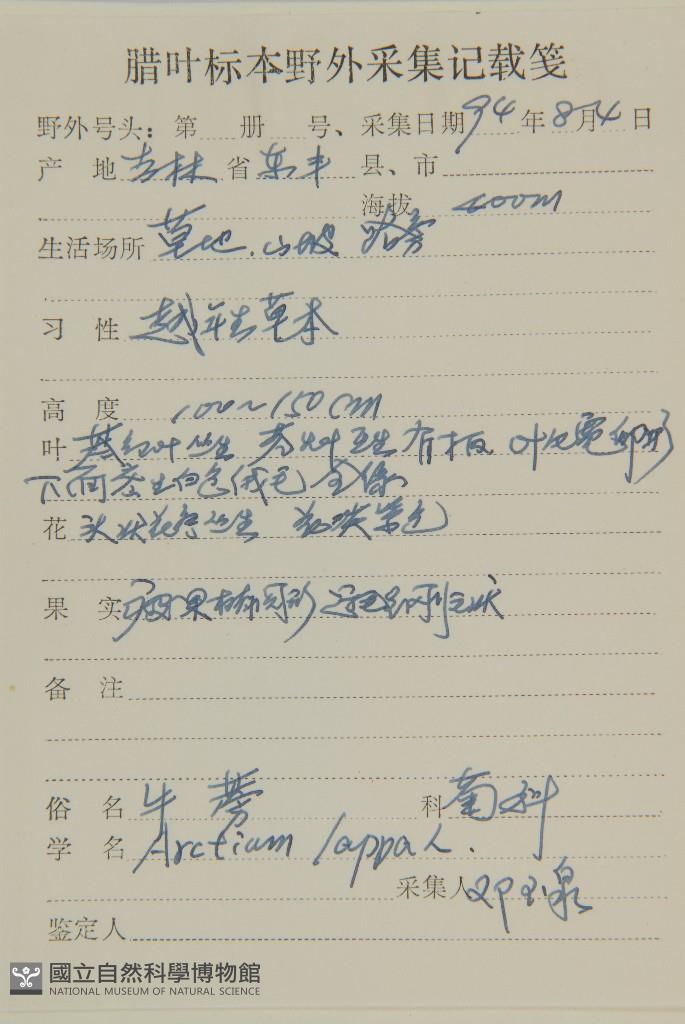 腊叶标本野外采集记载笺
野外号头：第 册 号、采集日期 94 年 8 月 4 日
产 地 吉林 省 东丰 县、市
海拔 400m
生活场所 草地、山坡 路旁
习 性 越年生草本
高 度 100～150cm
叶 基红叶丛生 茎生叶互生 有柄 叶心卵形
下面密生白色绒毛 全缘
花 头状花序丛生 花淡紫色
果 实 瘦果椭圆形 冠毛刚毛状
备 注
俗 名 牛蒡 科 菊科
学 名 Arctium lappa L.
采集人 邓玉泉
鉴定人
國立自然科學博物館
NATIONAL MUSEUM OF NATURAL SCIENCE